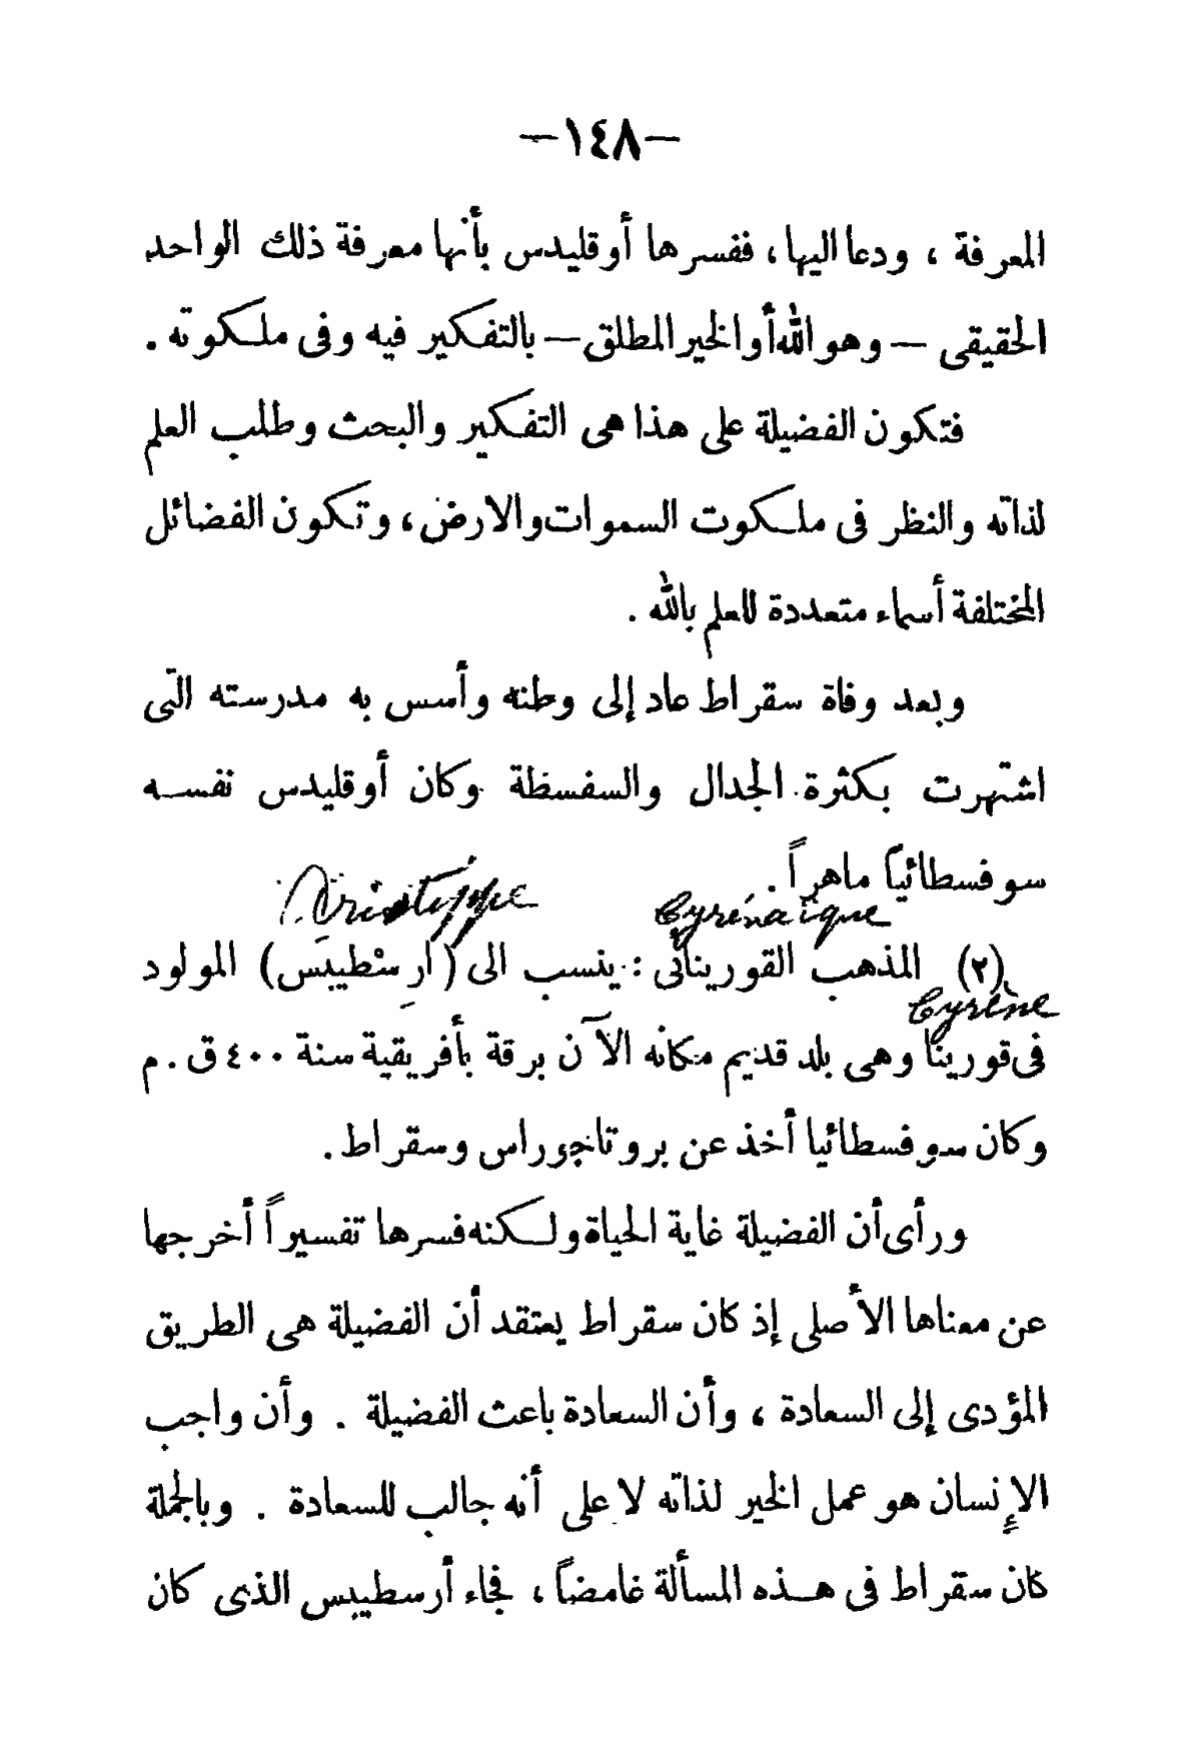 —١٤٨—
المعرفة ، ودعا اليها ، ففسرها أوقليدس بأنها معرفة ذلك الواحد
الحقيقى — وهو الله أو الخير المطلق — بالتفكير فيه وفى ملكوته .
فتكون الفضيلة على هذا هى التفكير والبحث وطلب العلم
لذاته والنظر فى ملكوت السموات والارض ، وتكون الفضائل
المختلفة أسماء متعددة للعلم بالله .
وبعد وفاة سقراط عاد إلى وطنه وأسس به مدرسته التى
اشتهرت بكثرة الجدال والسفسظة وكان أوقليدس نفسه
سوفسطائياً ماهراً .
Cyrénaïque Aristippe
(٢) المذهب القورينائى : ينسب الى (ارِسْطيبَس) المولود
Cyrène
فى قورينا وهى بلد قديم مكانه الآن برقة بأفريقية سنة ٤٠٠ ق . م
وكان سوفسطائيا أخذ عن بروتاجوراس وسقراط .
ورأى أن الفضيلة غاية الحياة ولكنه فسرها تفسيراً أخرجها
عن معناها الأصلى إذ كان سقراط يعتقد أن الفضيلة هى الطريق
المؤدى إلى السعادة ، وأن السعادة باعث الفضيلة . وأن واجب
الإنسان هو عمل الخير لذاته لا على أنه جالب للسعادة . وبالجملة
كان سقراط فى هذه المسألة غامضاً ، فجاء أرسطيبس الذى كان